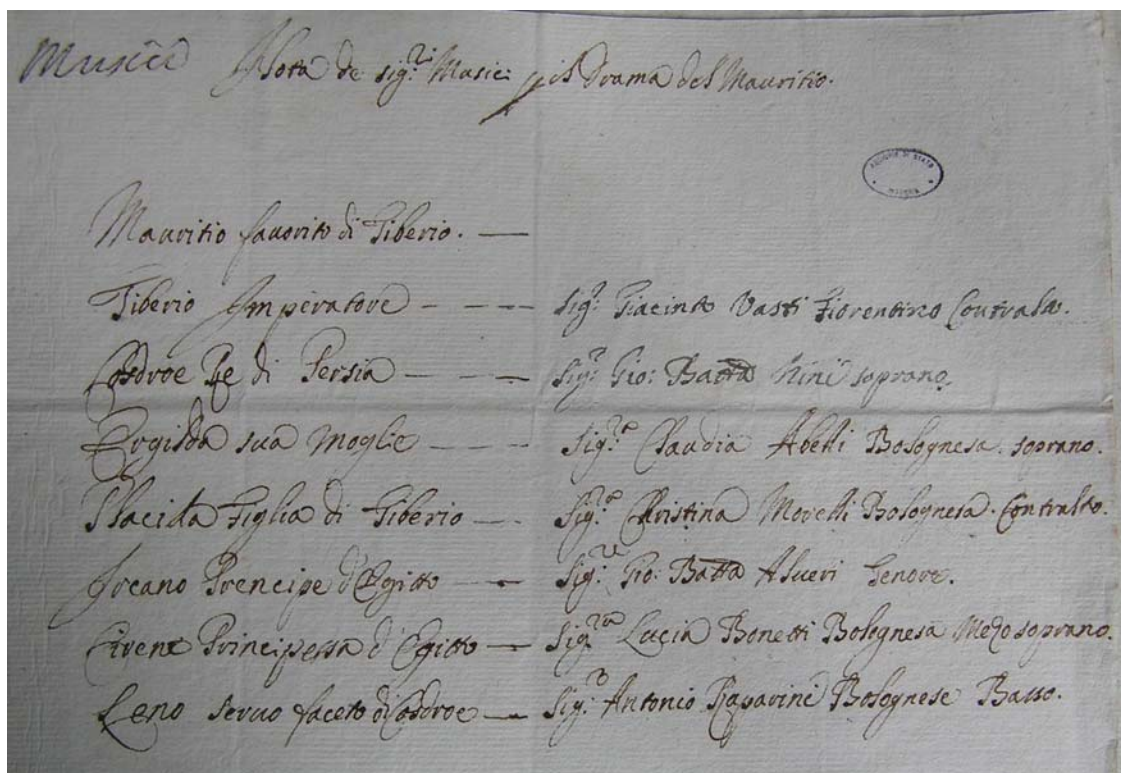 Musici Nota de sig.ri Musici p il Drama del Mauritio.
ARCHIVIO DI STATO MODENA
Mauritio fauorito di Tiberio. —
Tiberio Imperatore — — — — Sig.r Giacinto Vasti Fiorentino Contralto.
Cosdroe Re di Persia — — — Sig.r Gio: Batta Nini soprano.
Ergilda sua Moglie — — — Sig.ra Claudia Abelli Bolognesa. soprano.
Placida Figlia di Tiberio — — Sig.ra Christina Morelli Bolognesa. Contralto.
Ircano Prencipe d'Egitto — — Sig.r Gio: Batta Alueri Genove.
Cirene Principessa d'Egitto — Sig.ra Lucia Bonetti Bolognesa Mezo soprano.
Leno seruo faceto di Cosdroe — Sig.r Antonio Bolognese Basso.